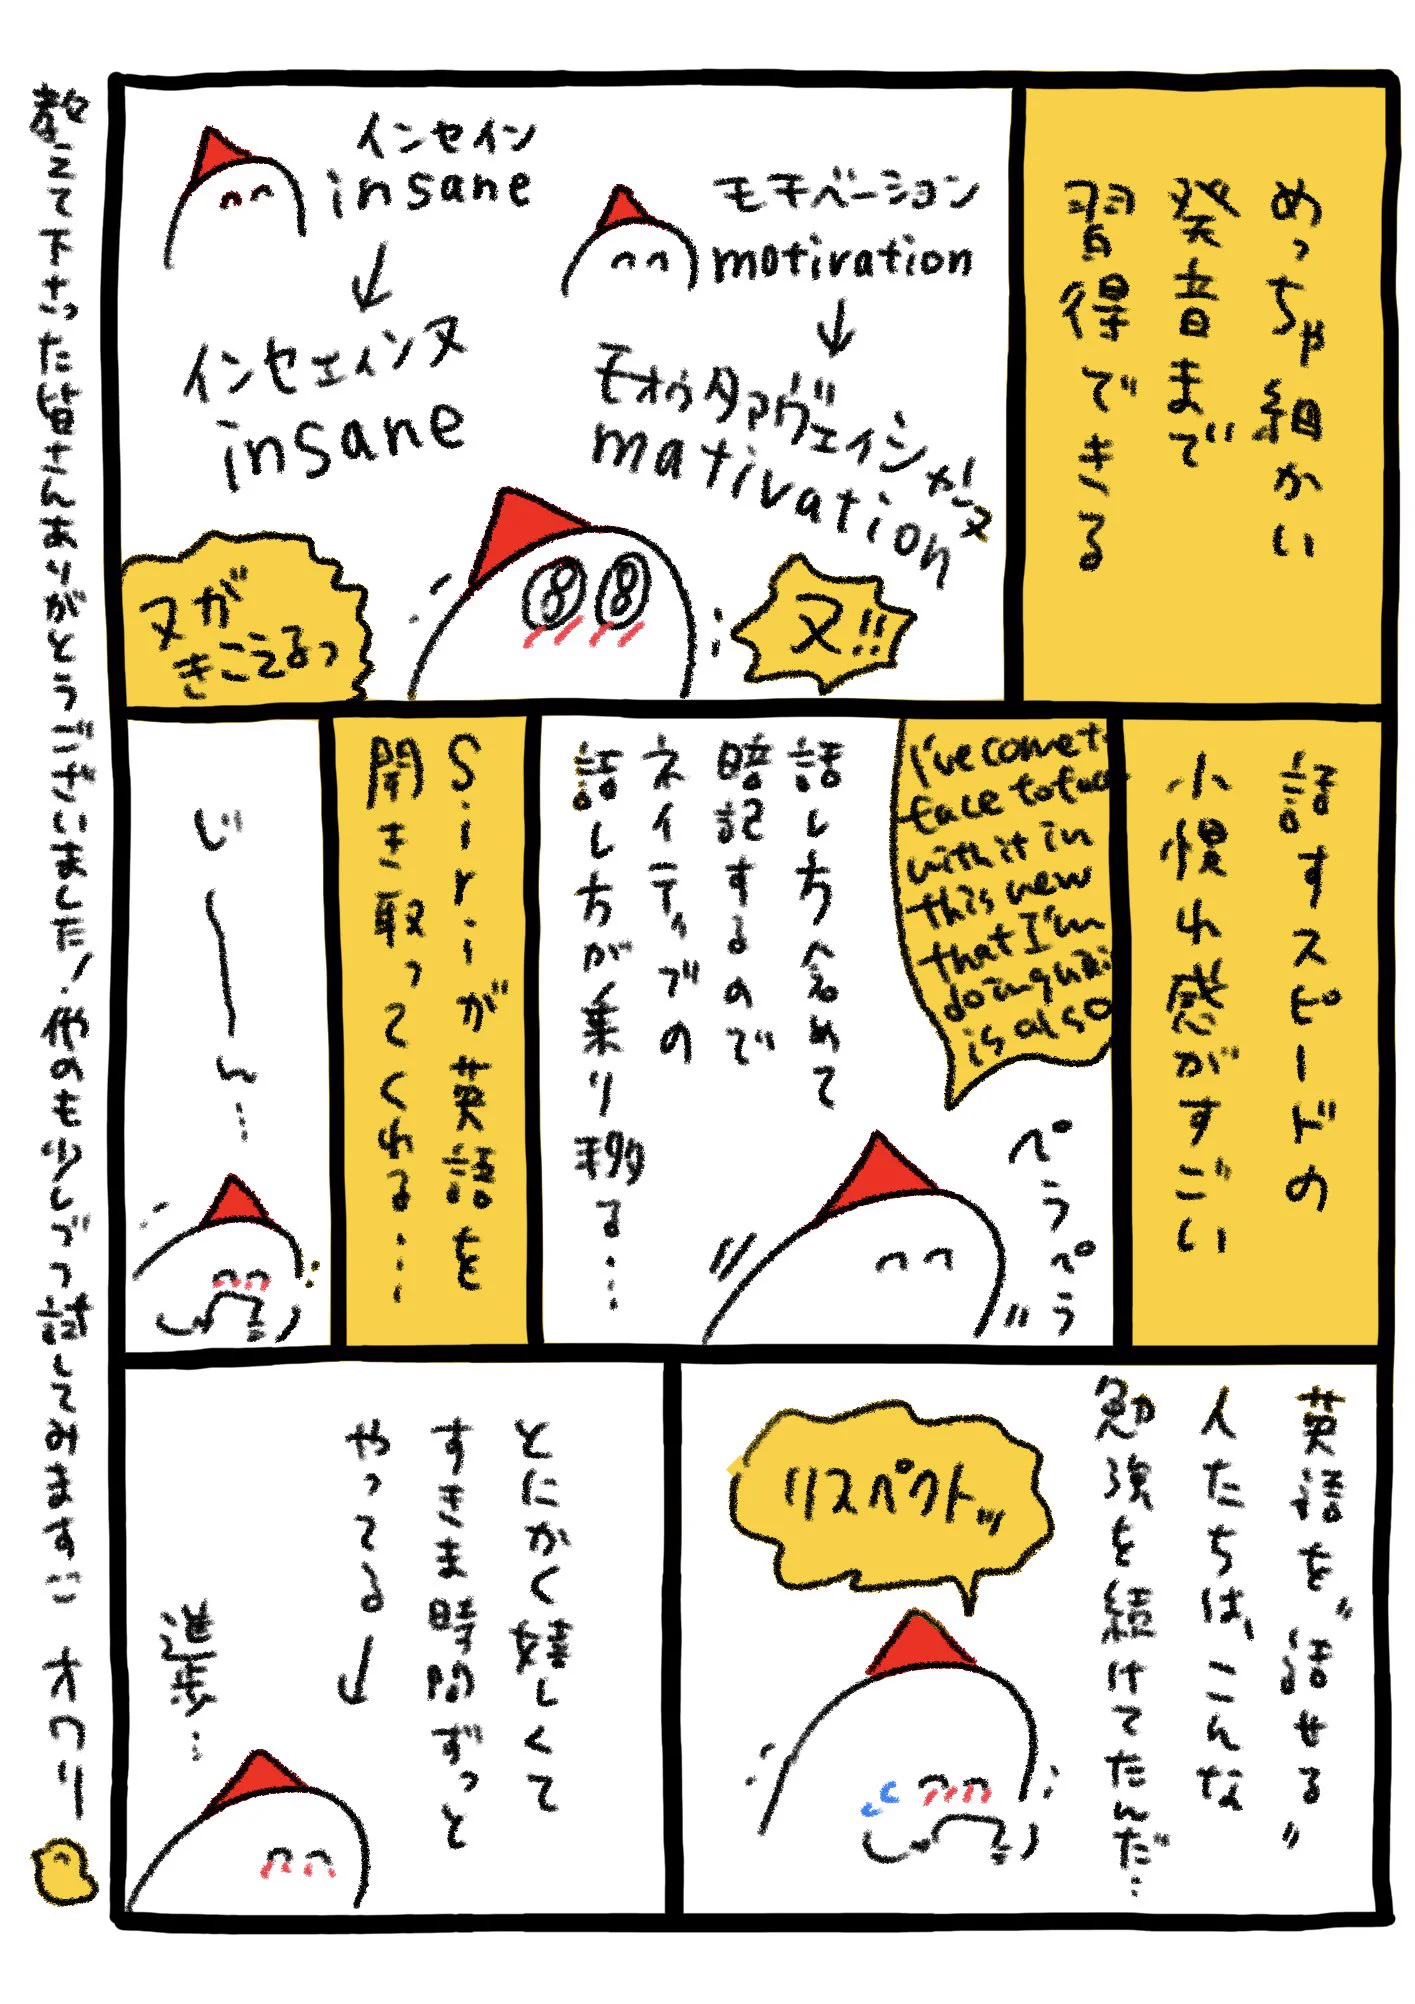 めっちゃ細かい
発音まで
習得できる
モチベーション
motivation
↓
モオゥタァヴェイシャンヌ
motivation
インセイン
insane
↓
インセェィンヌ
insane
ヌ!!
ヌが
きこえるっ
話すスピードの
小慣れ感がすごい
I've come t
face to fac
with it in
this new
that I'm
doing
is also
ぺらぺら
話し方含めて
暗記するので
ネイティブの
話し方が乗り移る…
Siriが英語を
聞き取ってくれる…
じーーん…
英語を"話せる"
人たちは、こんな
勉強を続けてたんだ…
リスペクトッ
とにかく嬉しくて
すきま時間ずっと
やってる↓
進歩…
教えて下さった皆さんありがとうございました!他のも少しづつ試してみます オワリ